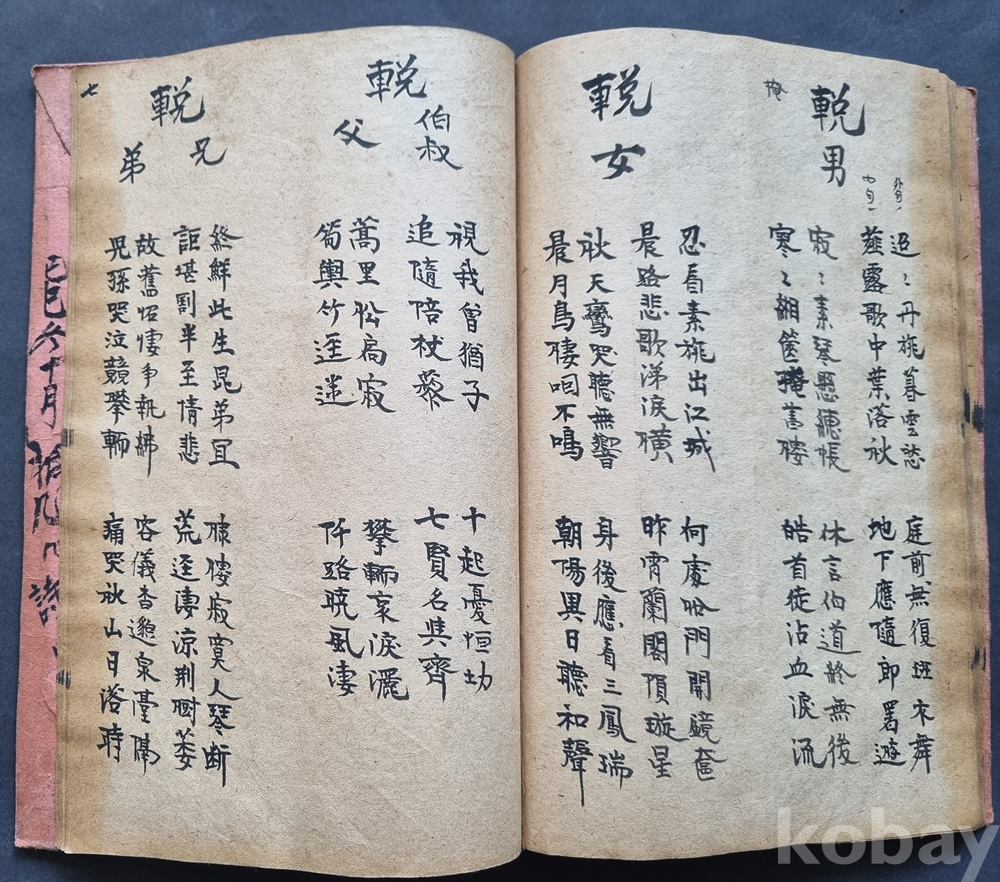 輓
男
掩
迢〻丹旐暮雲愁
薤露歌中葉落秋
庭前無復班衣舞
地下應隨郎署遊
寂〻素琴懸繐帳
寒〻緗篋掩書樓
休言伯道終無後
皓首徒沾血淚流
輓
女
忍看素旐出江城
晨路悲歌涕淚橫
何處門開鏡奩
昨宵蘭閣隕璇星
秋天鸞哭聽無響
晨月烏棲咽不鳴
身後應看三鳳瑞
朝陽異日聽和聲
輓
伯叔
父
視我曾猶子
追隨陪杖藜
十起憂恒切
七賢名與齊
蒿里松扃寂
筍輿竹逕迷
攀輀哀淚灑
阡路曉風凄
輓
兄
弟
終鮮此生昆弟宜
詎堪割半至情悲
棣樓寂寞人琴断
荒逕淒凉荆樹萎
故舊怊悽爭執紼
兒孫哭泣競攀輀
容儀杳邈泉臺隔
痛哭秋山日落時
七
十月
kobay